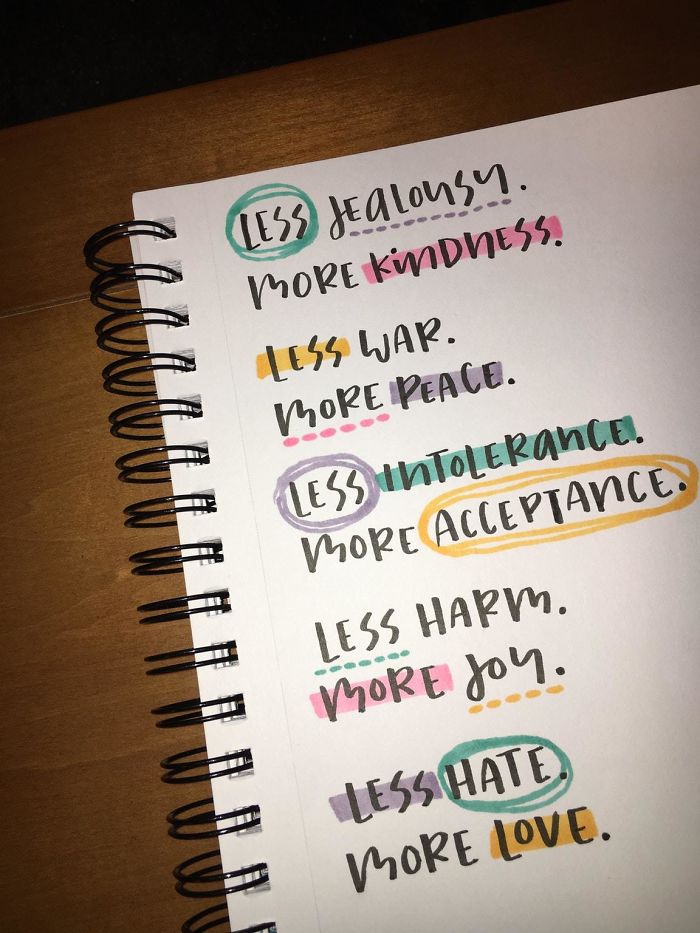 LESS JEALOUSY.
MORE KINDNESS.
LESS WAR.
MORE PEACE.
LESS INTOLERANCE.
MORE ACCEPTANCE.
LESS HARM.
MORE JOY.
LESS HATE.
MORE LOVE.